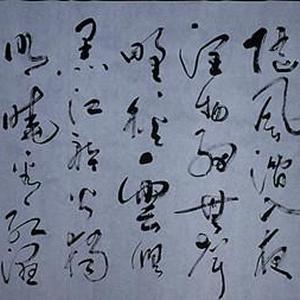 隨風潛入夜
潤物細無聲
野徑雲俱
黑江船火獨
明曉看紅濕